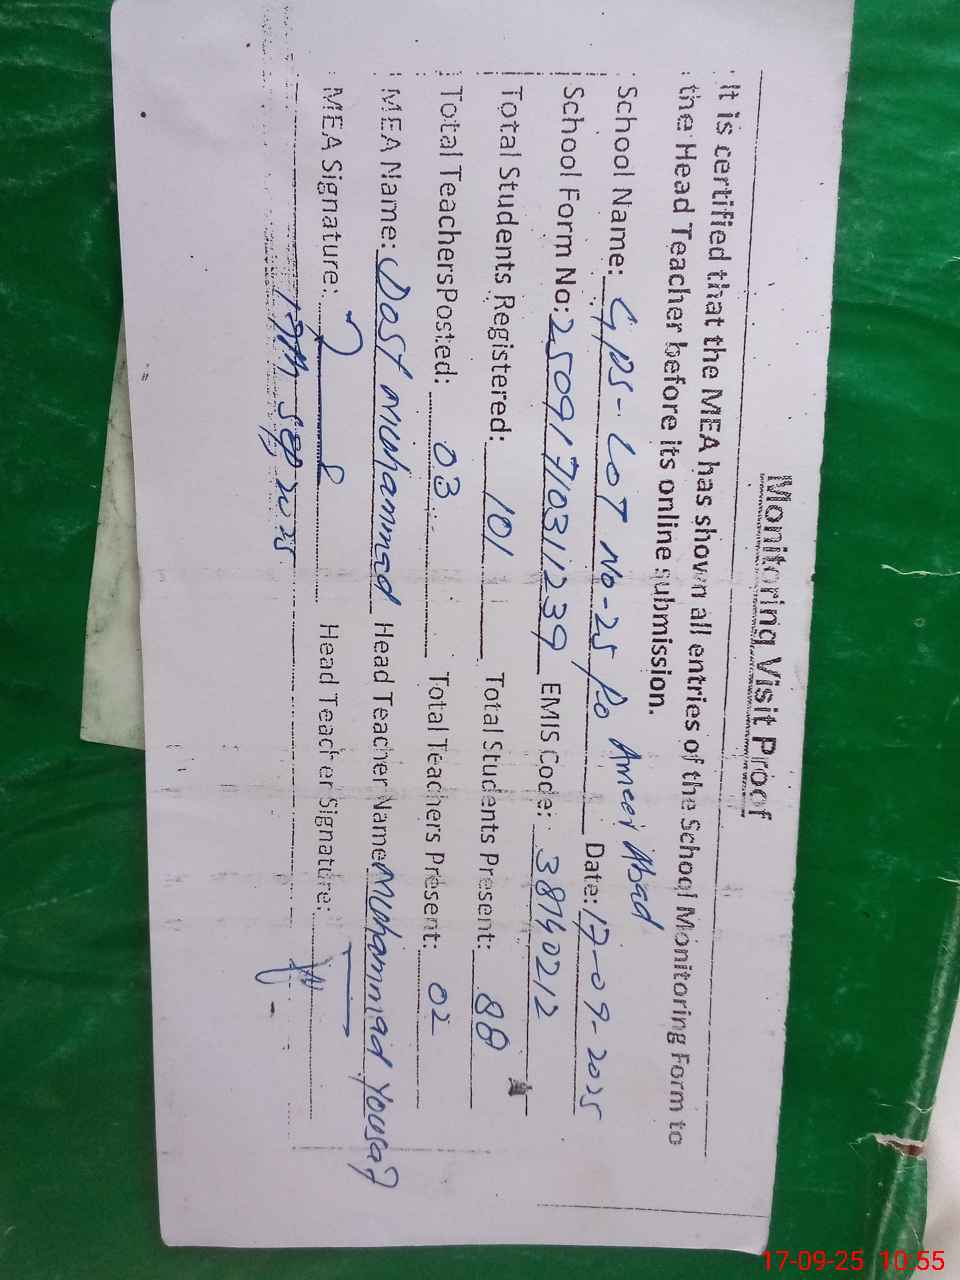 Monitoring Visit Proof
It is certified that the MEA has shown all entries of the School Monitoring Form to
the Head Teacher before its online submission.
School Name: GPS-LOT NO-25 Po Ameer Abad Date: 17-09-2025
School Form No: 2509171031 1239 EMIS Code: 38140212
Total Students Registered: 101 Total Students Present: 88
Total TeachersPosted: 03 Total Teachers Present: 02
MEA Name: Dost Muhammad Head Teacher Name Muhammad Yousaf
MEA Signature: Head Teacher Signature:
17th Sep 2025
17-09-25 10:55